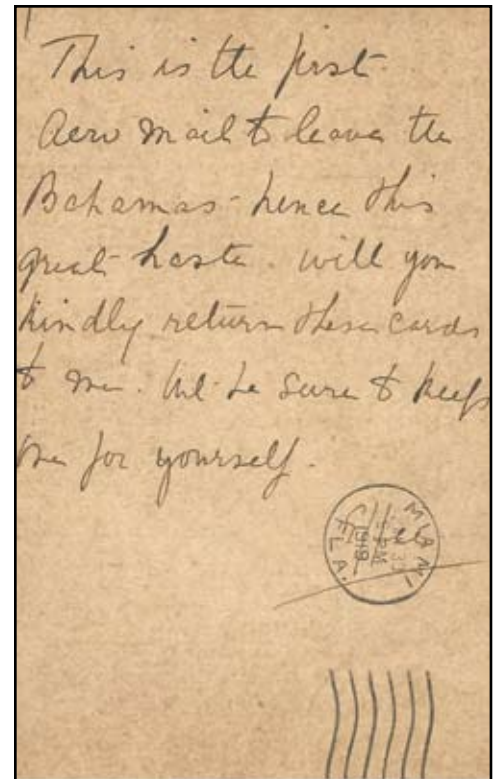 This is the first
Aero Mail to leave the
Bahamas - hence this
great haste. Will you
kindly return these cards
to me. be sure to keep
one for yourself.
MIAMI
FLA.
1919